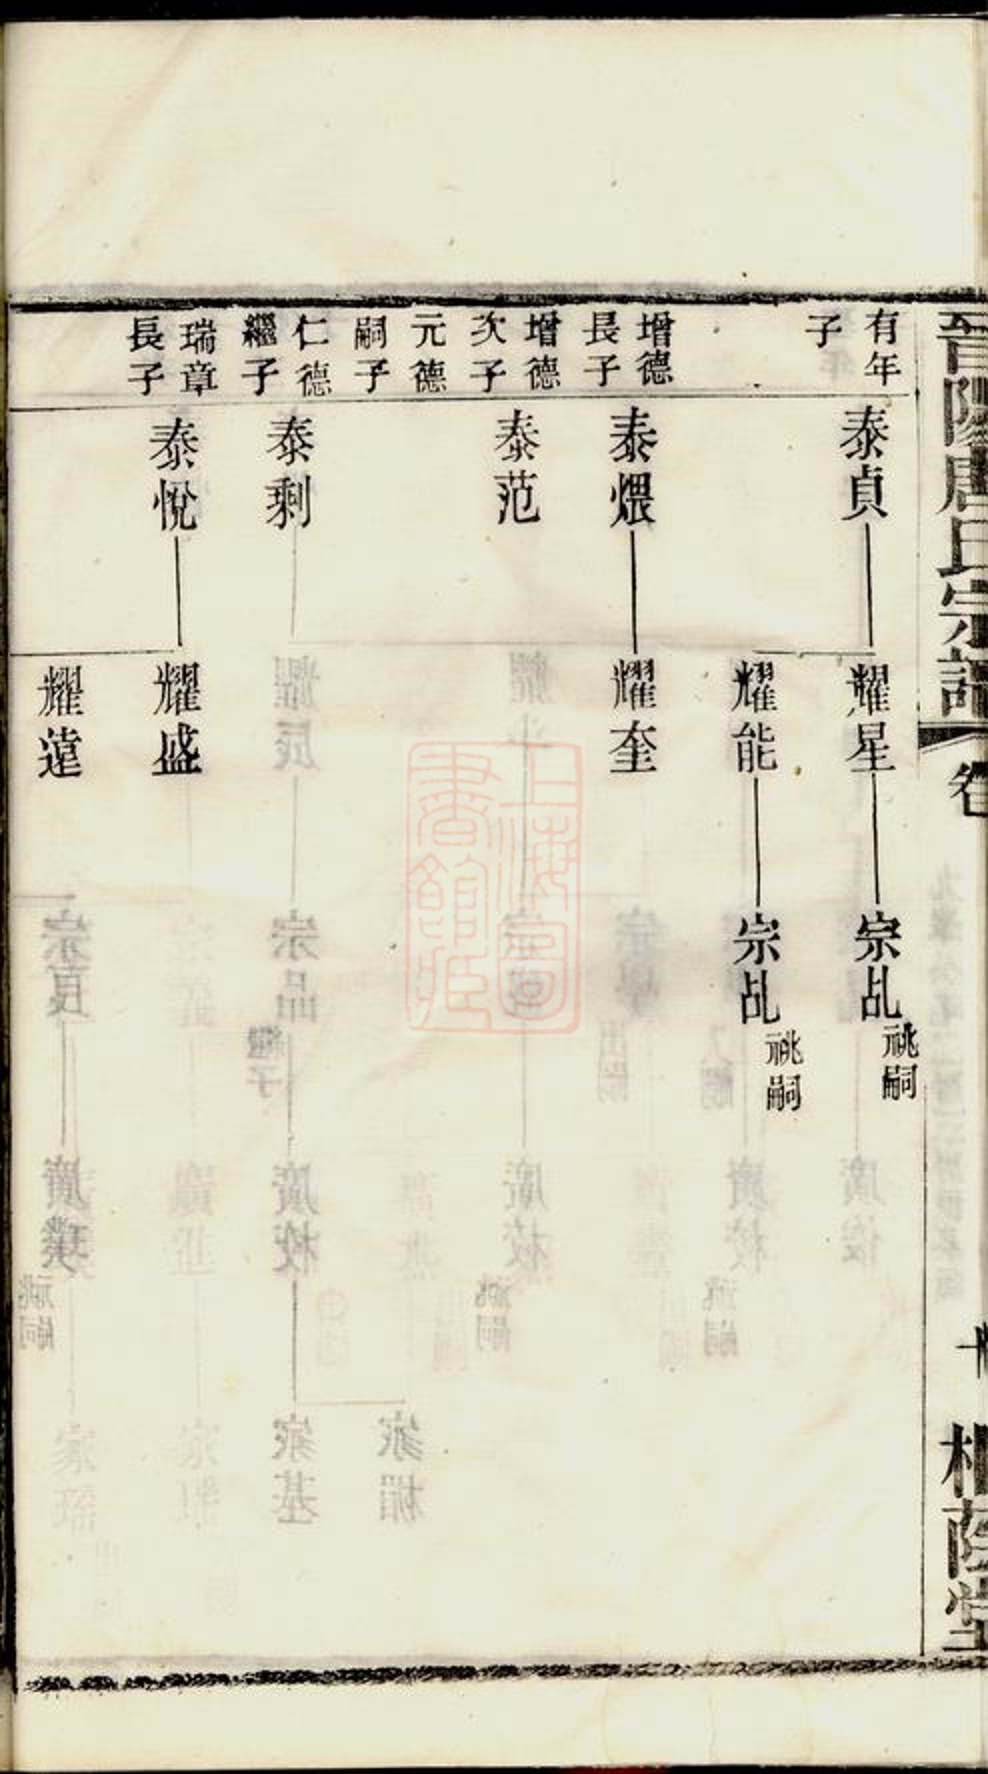 晉陵唐氏宗譜
卷
柏蔭堂
有年
子
泰貞
耀星
宗乩
祧嗣
耀能
宗乩
祧嗣
增德
長子
泰煨
耀奎
增德
次子
泰范
元德
嗣子
仁德
繼子
泰剩
瑞章
長子
泰悅
耀盛
耀遠
上海圖
書館藏